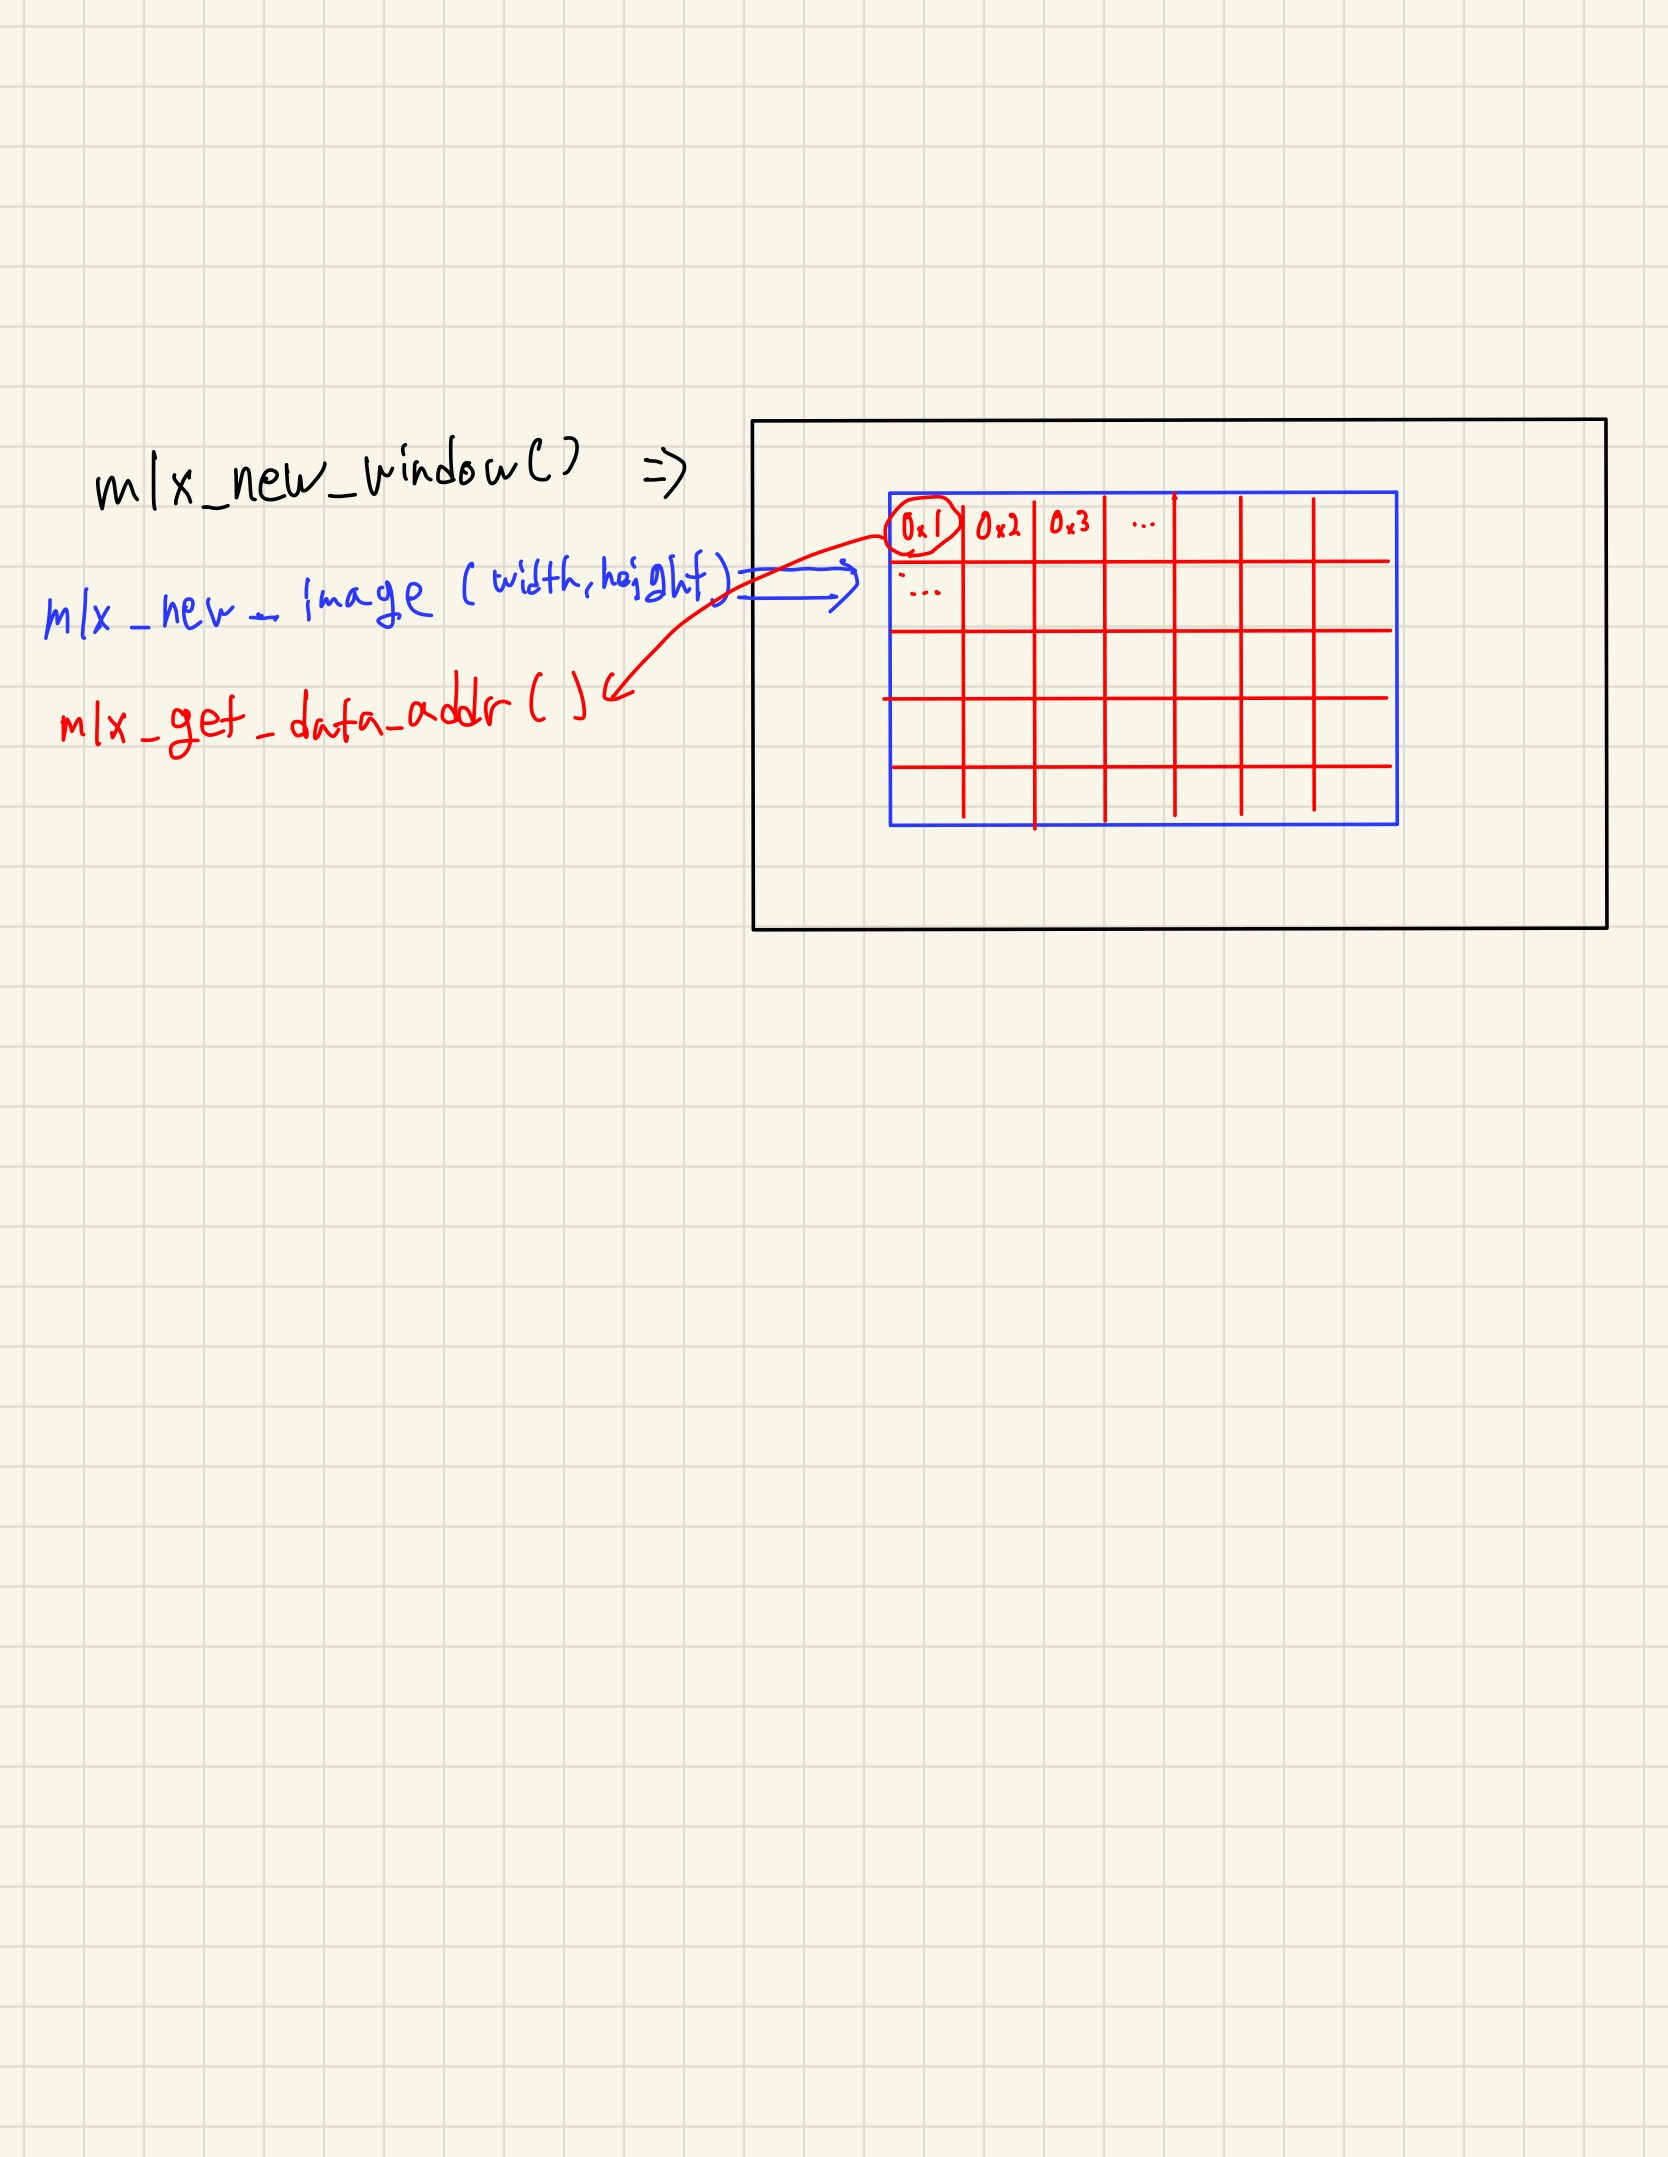 mlx_new_window() =>
mlx_new_image (width, height)
mlx_get_data_addr ( )
0x1 0x2 0x3 ...
...